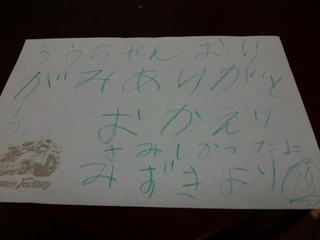 うぅちゃん おり
がみ ありがと
う おかえり
さみしかったよ
みずきより
Factory